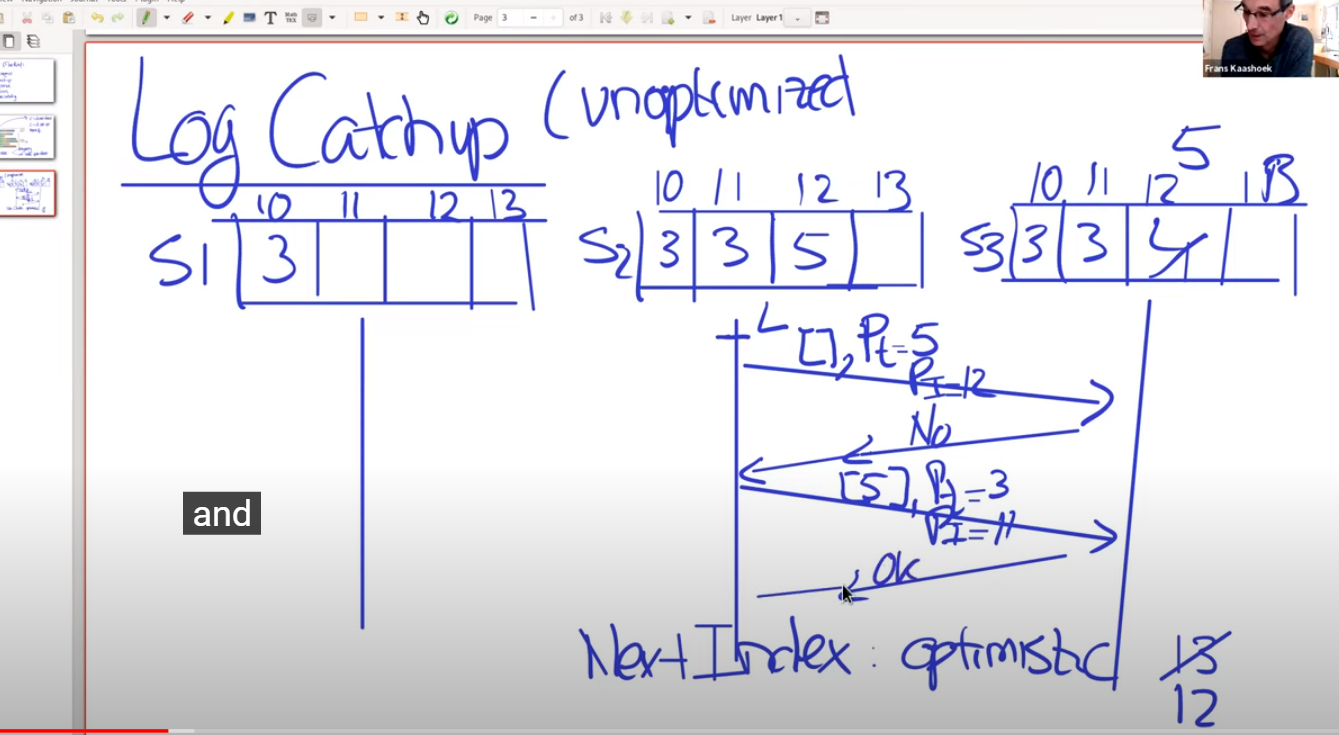 Page 3 of 3 Layer Layer 1
Frans Kaashoek
Log Catchup (unoptimized
5
10 11 12 13
10 11 12 13
10 11 12 13
S1 3
S2 3 3 5
S3 3 3 4
L [], Pt=5
PI=12
No
[5], Pt=3
PI=11
Ok
and
Next Index : optimistic 13
12